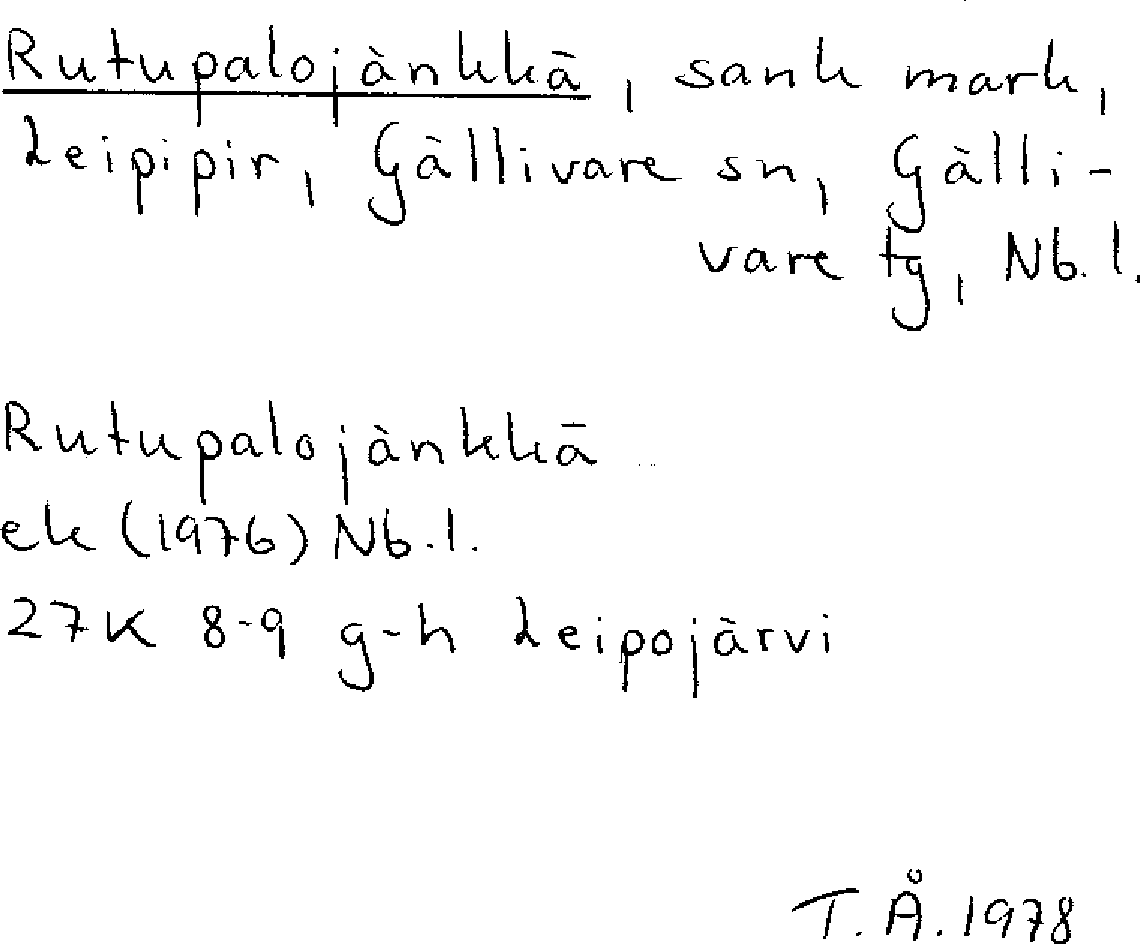 Rutupalojänkkä, sank mark,
Leipipir, Gällivare sn, Gälli-
vare tg, Nb. l.
Rutupalojänkkä
ek (1976) Nb. l.
27K 8-9 g-h Leipojärvi
T. Å. 1978